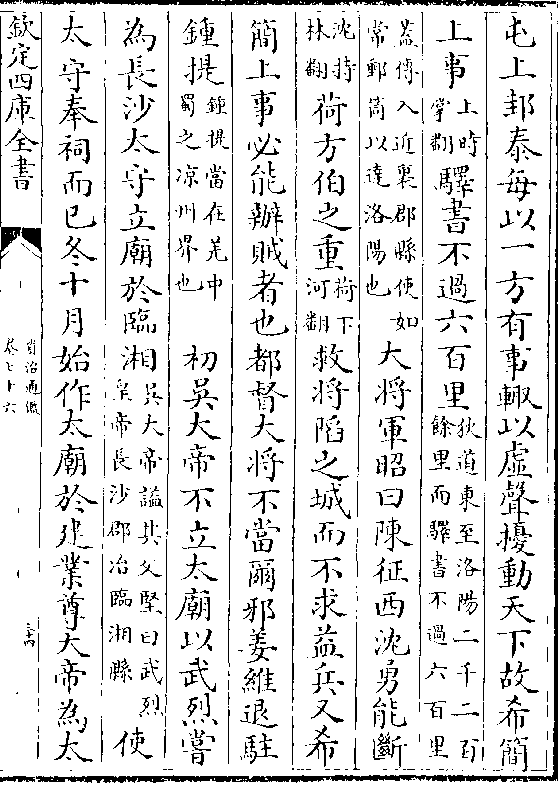 屯上邽泰每以一方有事輒以虛聲擾動天下故希簡
上事上時掌翻驛書不過六百里狄道東至洛陽二千二百餘里而驛書不過六百里
蓋傳入近裏郡縣使如常郵筒以達洛陽也大將軍昭曰陳征西沈勇能斷
沈持林翻荷方伯之重荷下河翻救將陷之城而不求益兵又希
簡上事必能辦賊者也都督大將不當爾邪姜維退駐
鍾提鍾提當在羌中蜀之凉州界也初吳大帝不立太廟以武烈嘗
為長沙太守立廟於臨湘吳大帝謚其父堅曰武烈皇帝長沙郡治臨湘縣使
太守奉祠而已冬十月始作太廟於建業尊大帝為太
欽定四庫全書
資治通鑑
卷七十六
三十四